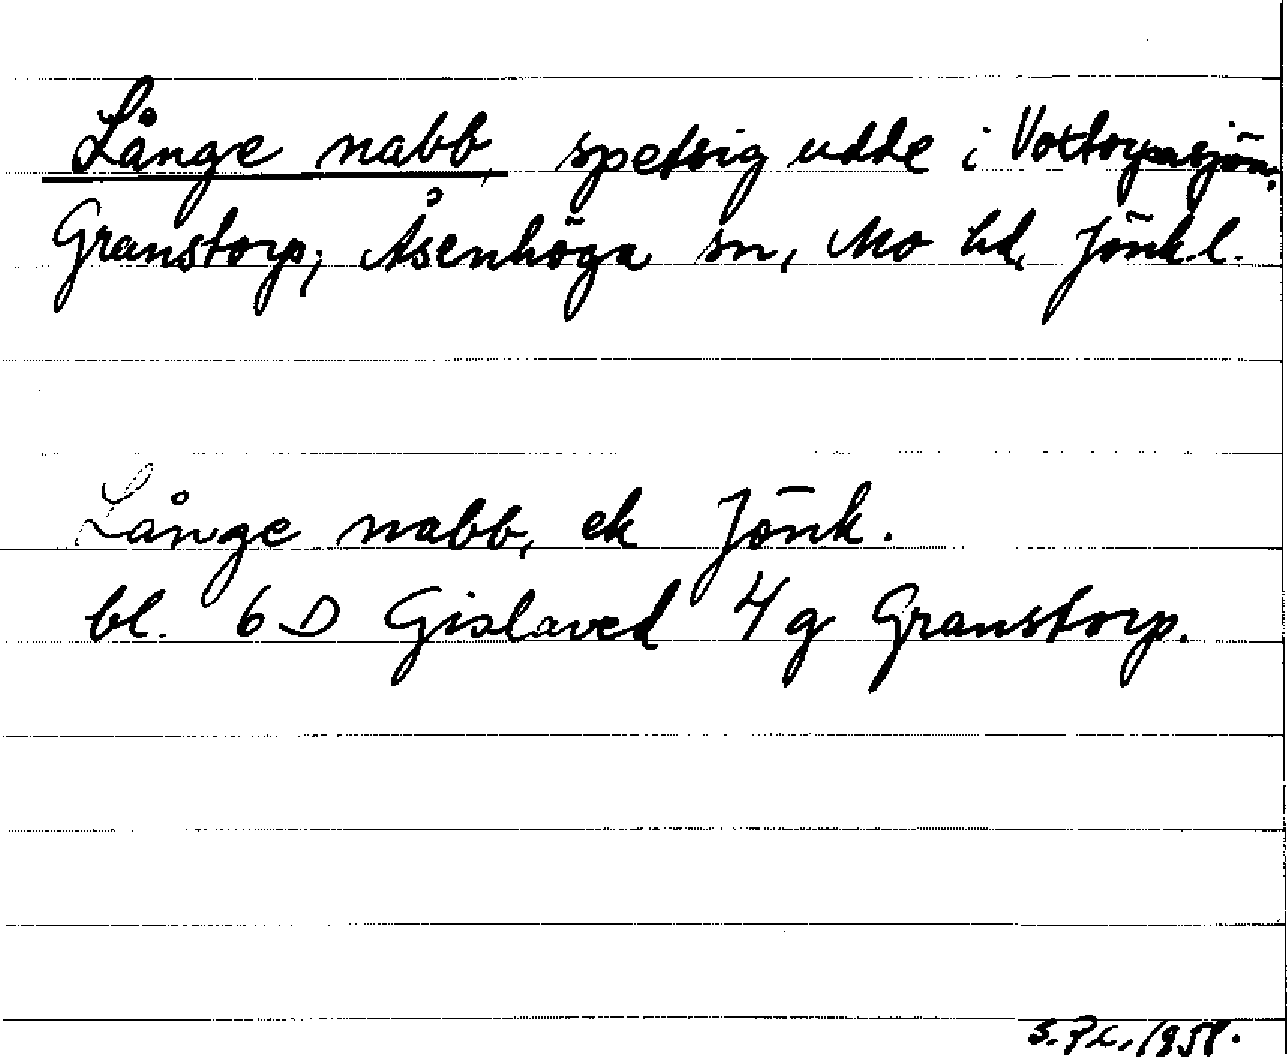 Långe nabb, spetsig udde i Vottorpasjön,
Granstorp, Åsenhöga sn, Mo hd, Jönk.l.
Långe nabb, ek Jönk.
bl. 6 D Gislaved 4 g Granstorp.